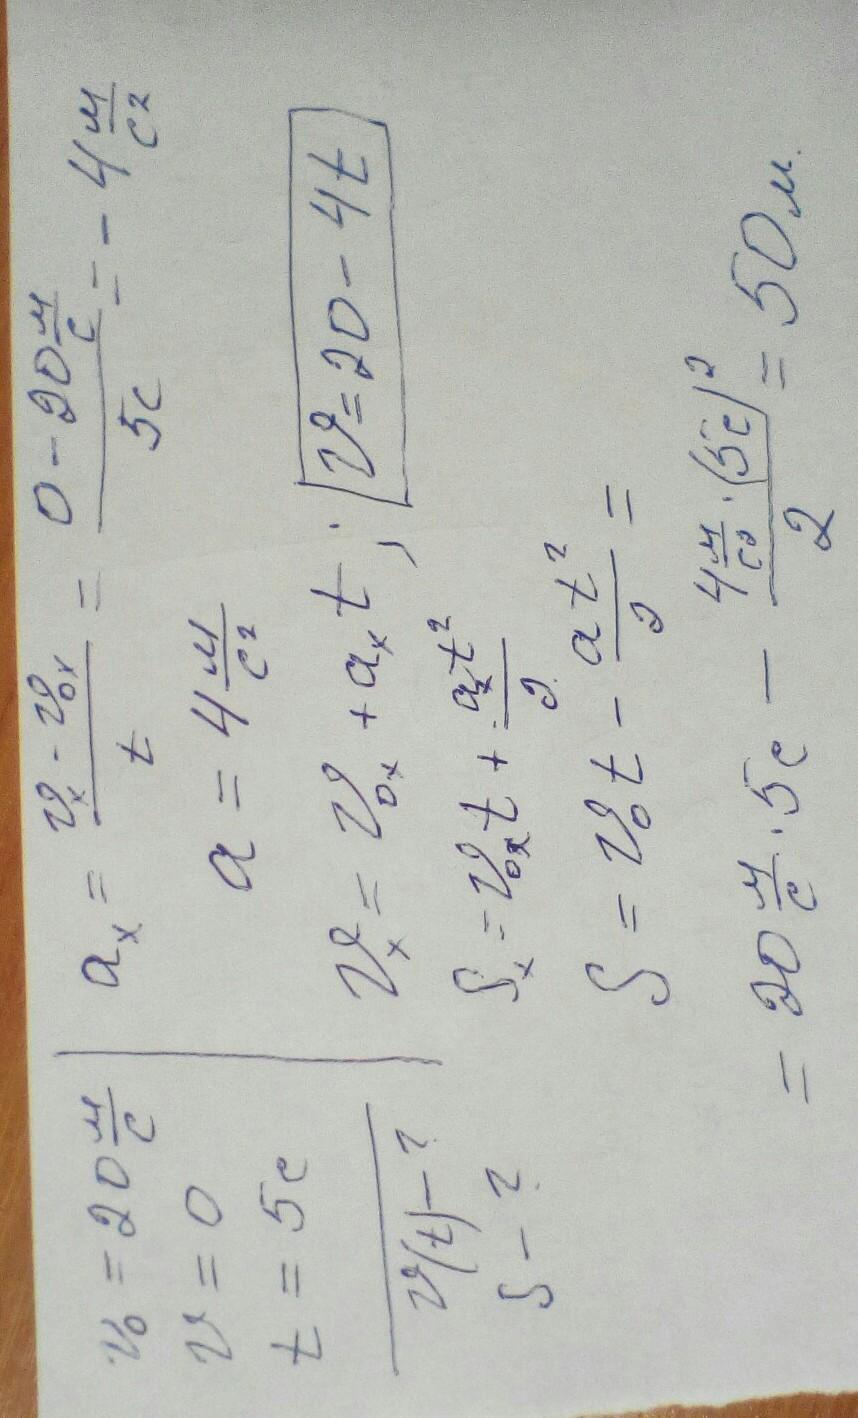 v₀ = 20 м/с
v = 0
t = 5с
v(t) – ?
S – ?
aₓ = (vₓ - v₀ₓ)/t = (0 - 20 м/с)/5с = - 4 м/с²
a = 4 м/с²
vₓ = v₀ₓ + aₓt ; v = 20 - 4t
Sₓ = v₀ₓt + aₓt²/2
S = v₀t - at²/2 =
= 20 м/с · 5с - (4 м/с² · (5с)²)/2 = 50м.